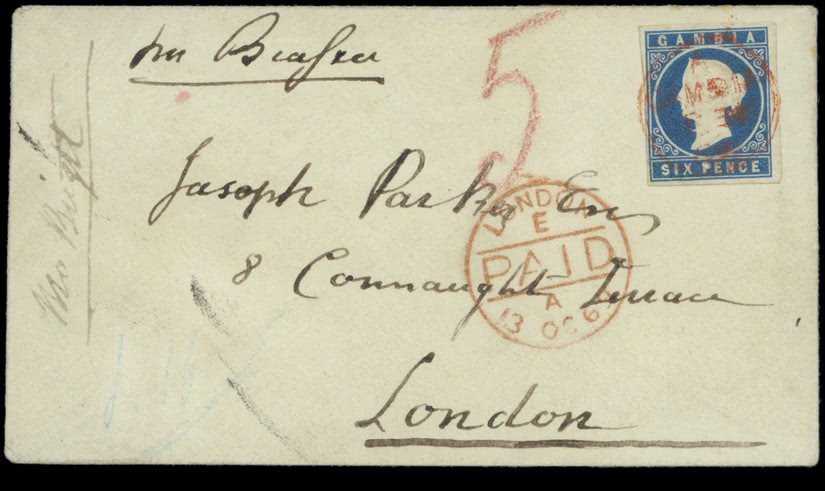 per Biafra
5
GAMBIA
SIX PENCE
Joseph Parker Esq
8 Connaught Terrace
London
LONDON
E
PAID
A
13 OC 6